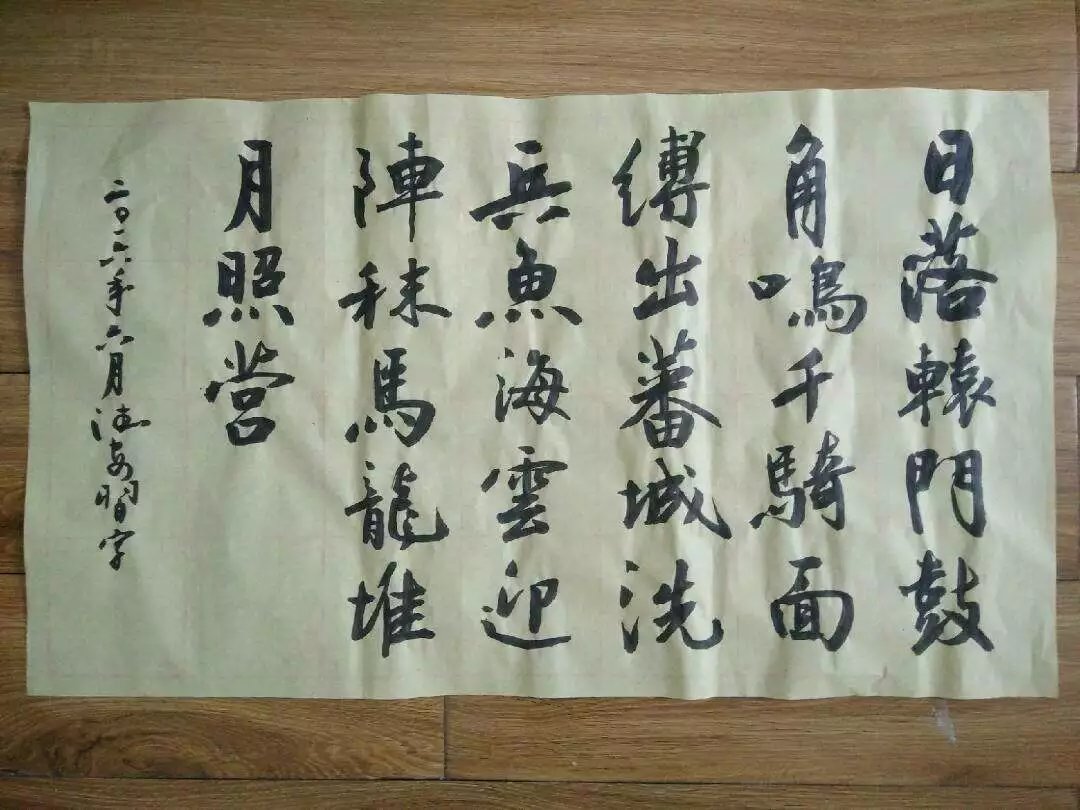 日落轅門鼓
角鳴千騎面
縛出蕃城洗
兵魚海雲迎
陣秣馬龍堆
月照營
二〇一六年六月德安習字